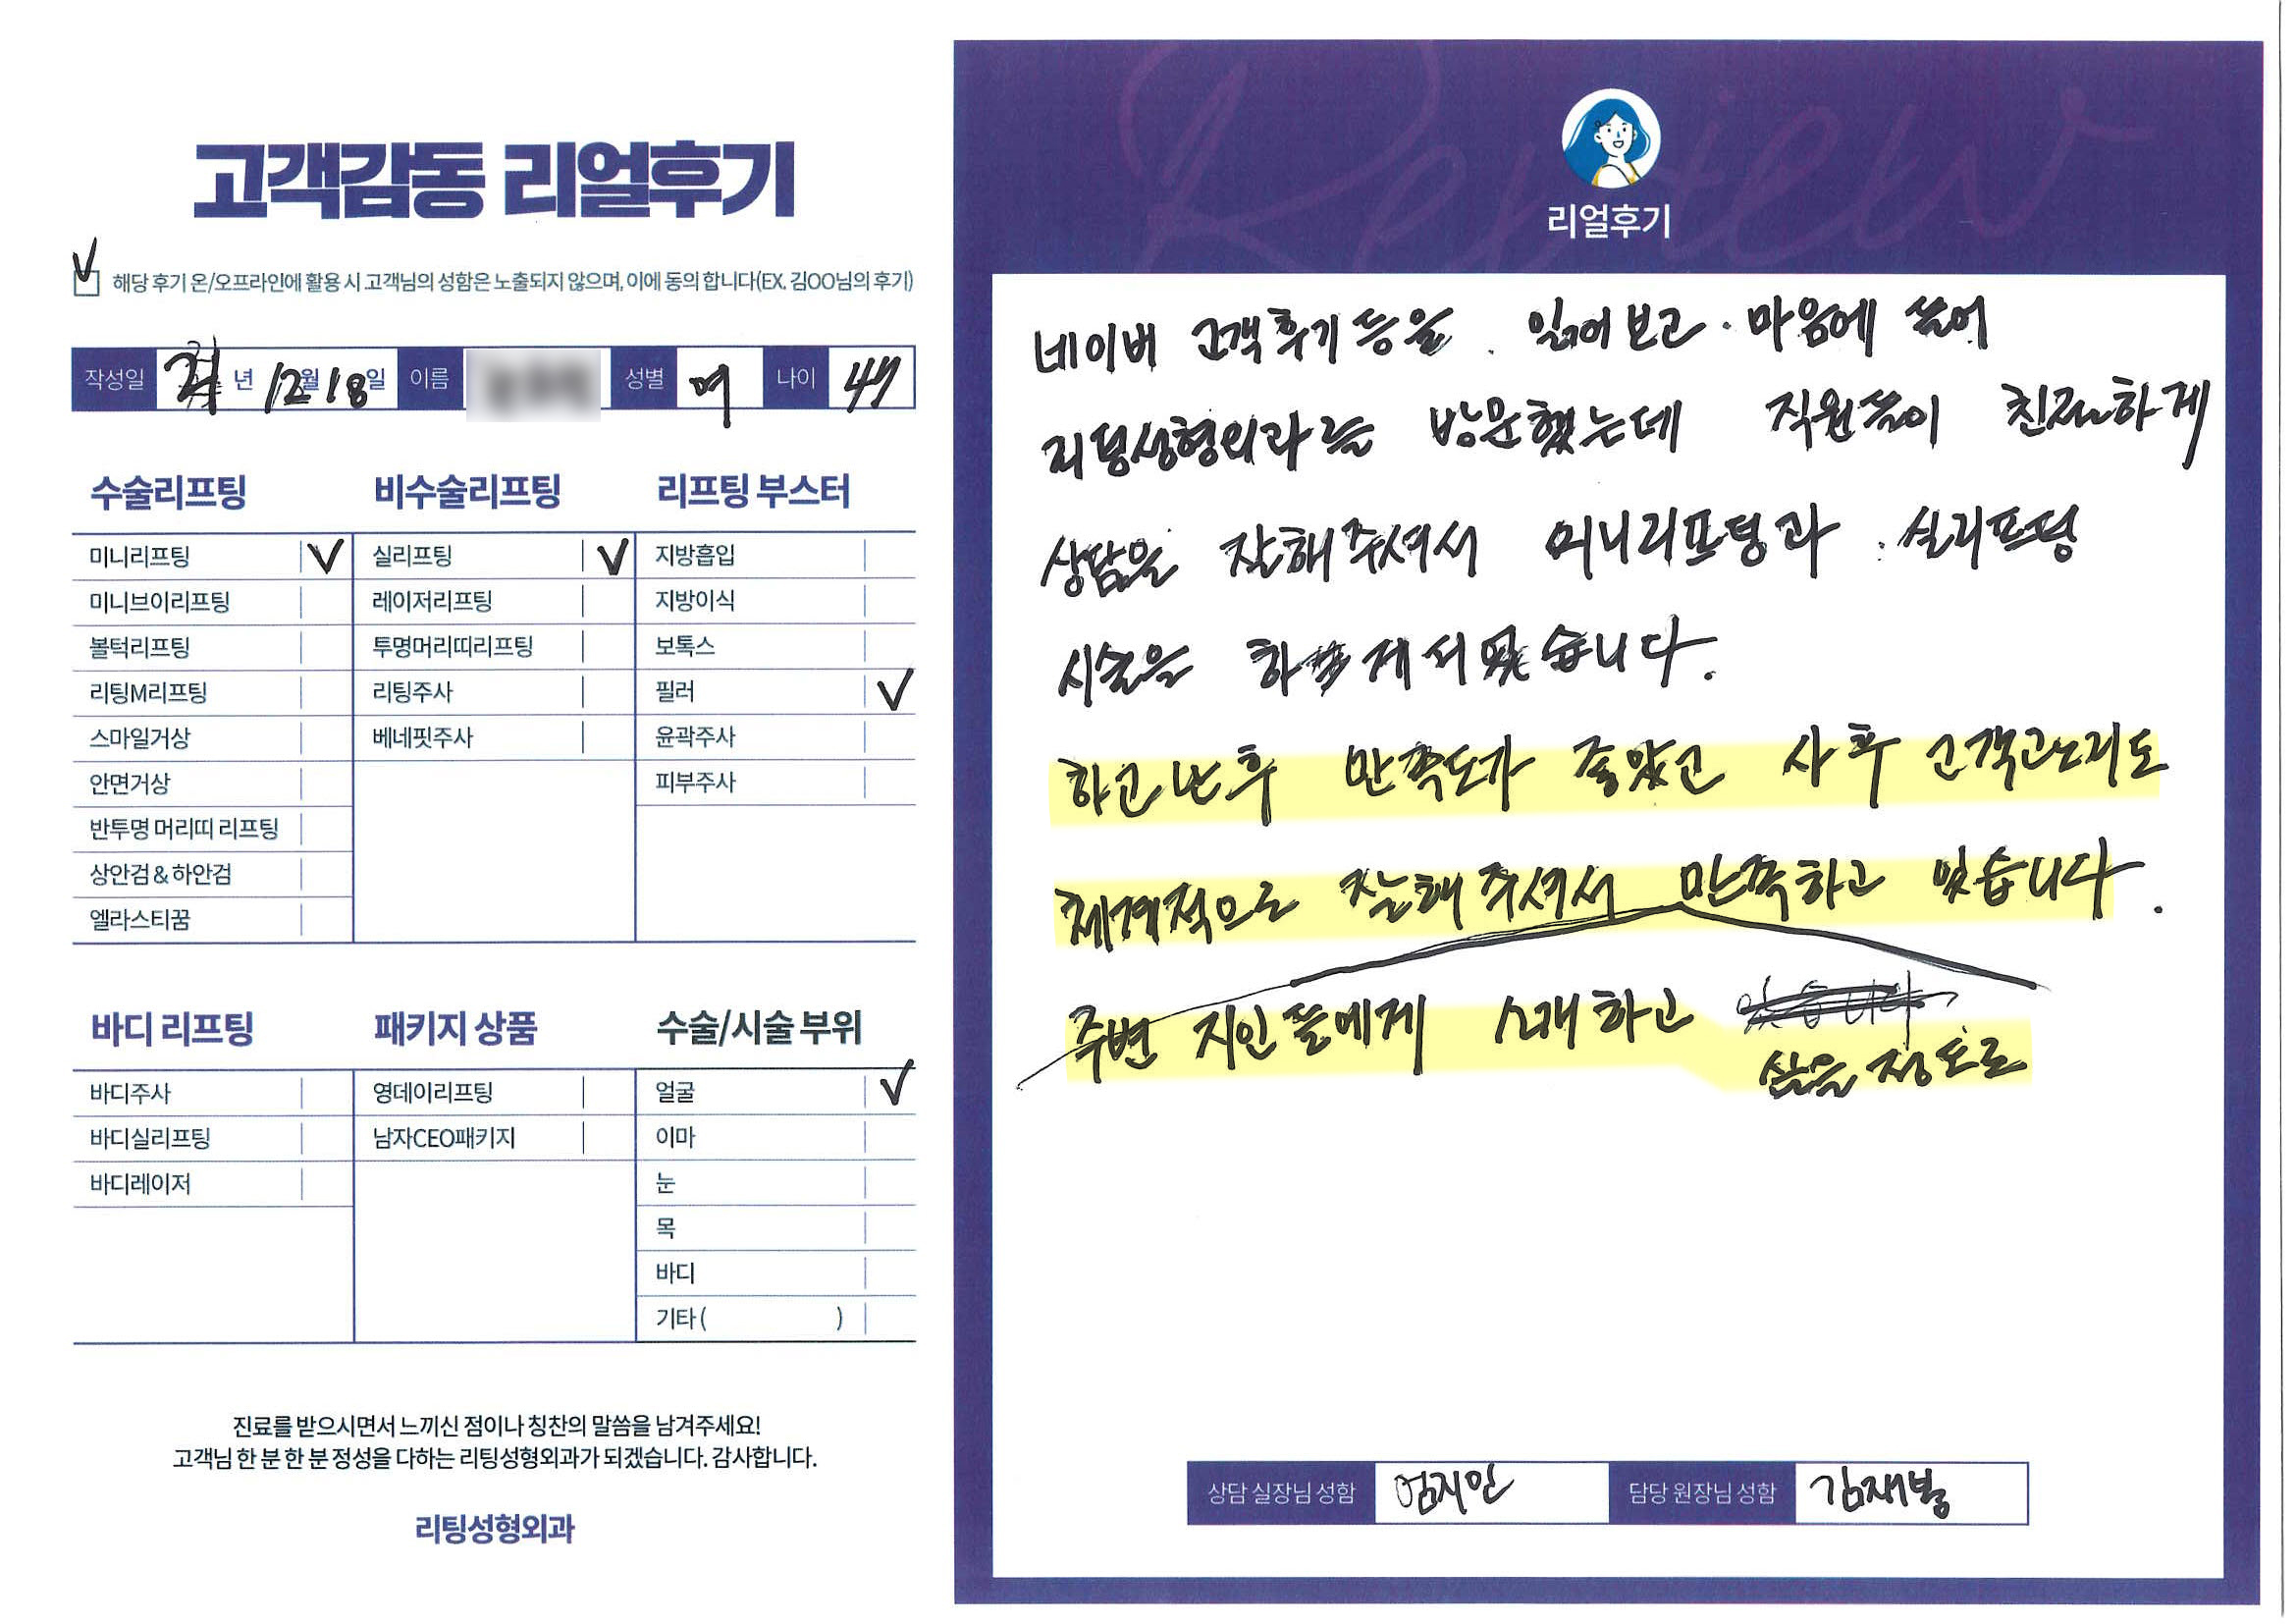 고객감동 리얼후기
해당 후기 온/오프라인에 활용 시 고객님의 성함은 노출되지 않으며, 이에 동의 합니다(EX. 김OO님의 후기)
작성일 년 12월 18일 이름 성별 여 나이 47
수술리프팅 비수술리프팅 리프팅 부스터
미니리프팅 V 실리프팅 V 지방흡입
미니브이리프팅 레이저리프팅 지방이식
볼턱리프팅 투명머리띠리프팅 보톡스
리팅M리프팅 리팅주사 필러 V
스마일거상 베네핏주사 윤곽주사
안면거상 피부주사
반투명 머리띠 리프팅
상안검 & 하안검
엘라스티꿈
바디 리프팅 패키지 상품 수술/시술 부위
바디주사 영데이리프팅 얼굴 V
바디실리프팅 남자CEO패키지 이마
바디레이저 눈
목
바디
기타 ( )
진료를 받으시면서 느끼신 점이나 칭찬의 말씀을 남겨주세요!
고객님 한 분 한 분 정성을 다하는 리팅성형외과가 되겠습니다. 감사합니다.
리팅성형외과
Review
리얼후기
네이버 고객후기 등을 읽어보고 마음에 들어
리팅성형외과를 방문했는데 직원들이 친절하게
상담을 잘해주셔서 미니리프팅과 실리프팅
시술을 하게 되었습니다.
하고 난 후 만족도가 좋았고 사후 고객관리도
체계적으로 잘해주셔서 만족하고 있습니다.
주변 지인들에게 소개하고 있습니다
싶을 정도로
상담 실장님 성함 엄지인 담당 원장님 성함 김재봉